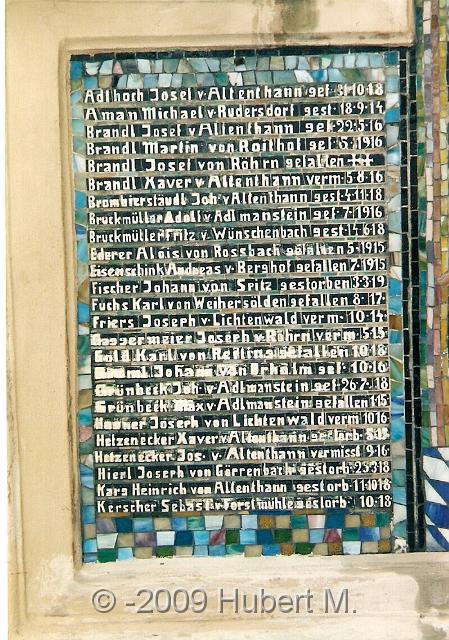 Adlhoch Josef v. Altenthann gef. 31·10·18
Aman Michael v. Rudersdorf gest. 18·9·14
Brandl Josef v. Altenthann gef. 29·5·16
Brandl Martin von Roilhof gef. 5·1916
Brandl Josef von Röhrn gefallen
Brandl Xaver v. Altenthann verm. 5·8·16
Brombierstäudl Joh. v. Altenthann gest. 4·11·18
Bruckmüller Adolf v. Adlmanstein gef. 7·1916
Bruckmüller Fritz v. Wünschenbach gest. 1·6·18
Ederer Alois von Rossbach gefallen 5·1915
Eisenschink Andreas v. Berghof gefallen 7·1915
Fischer Johann von Spitz gestorben 3·3·19
Fuchs Karl von Weihersölden gefallen 8·17·
Friers Joseph v. Lichtenwald verm. 10·14
Joseph v. Röhrn verm. 5·15
Göld Karl von Refling gefallen 10·18
Johann von Orhalm gef. 10·16
Grünbeck Joh. v. Adlmanstein gef. 26·7·18
Grünbeck Max v. Adlmanstein gefallen 1·15
Joseph von Lichtenwald verm. 10 16
Helzenecker Xaver v. Altenthann gestorb.
Helzenecker Jos. v. Altenthann vermisst 9·16
Hierl Joseph von Görrenbach gestorb. 25·3·18
Karg Heinrich von Altenthann gestorb. 1·10·18
Kerscher Sebast. v. Forstmühle gestorb. 10·18
© -2009 Hubert M.